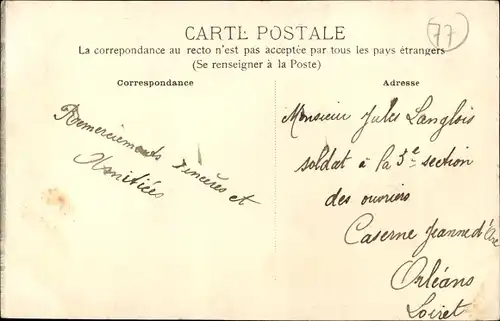 CARTE POSTALE
77
La correpondance au recto n'est pas acceptée par tous les pays étrangers
(Se renseigner à la Poste)
Correspondance
Remerciements sincères et
Amitiées
Adresse
Monsieur Jules Langlois
soldat à la 5e section
des ouvriers
Caserne Jeanne d'Arc
Orléans
Loiret